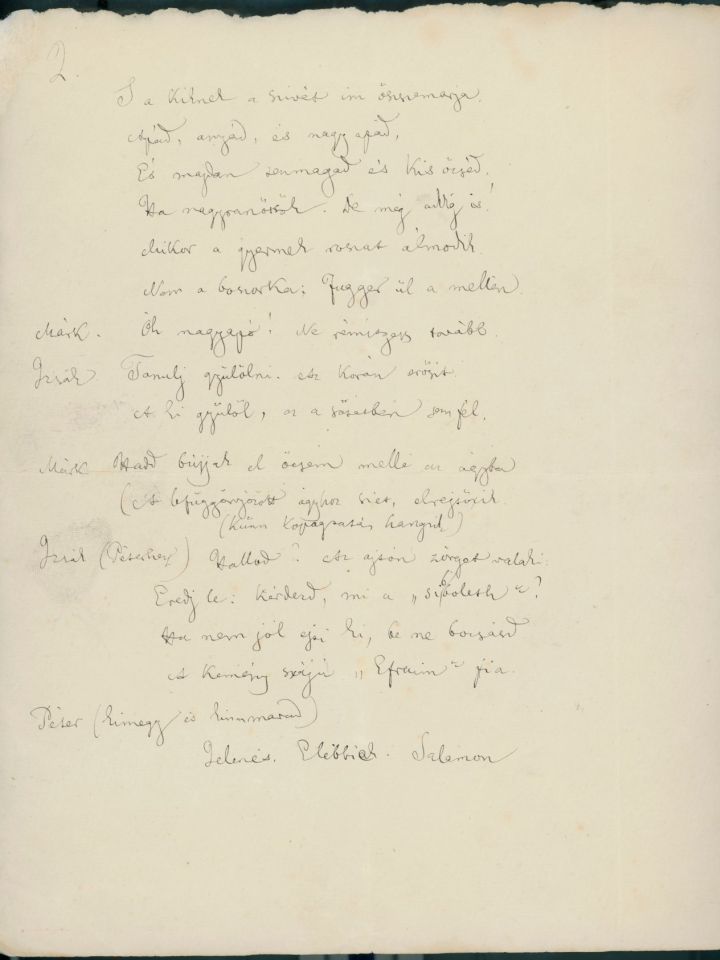 2.
S a kiknek a szivét im összemarja.
Apád, anyád, és nagyapád,
És majdan tenmagad és kis öcséd.
Ha nagyranőttök. De még addig is!
Mikor a gyermek rosszat álmodik
Nem a boszorka: Fugger ül a mellén.
Márk. Óh nagyapó! Ne rémitgess tovább.
Izsák Tanulj gyülölni. Az Korán erősit.
A ki gyülöl, az a sötétben sem fél.
Márk Hadd bújjak el öcsém mellé az ágyba
(A befüggönyözött ágyhoz siet, elrejtőzik.
(Künn kopogtatás hangzik)
Izsák (Péterhez) Hallod? Az ajtón zörget valaki.
Eredj le: Kérdezd, mi a „sibboleth"?
Ha nem jól ejti ki, be ne bocsásd
A kemény szájú „Efraim" fia.
Péter (kimegy és kinnmarad)
Jelenés. Elébbiek. Salamon